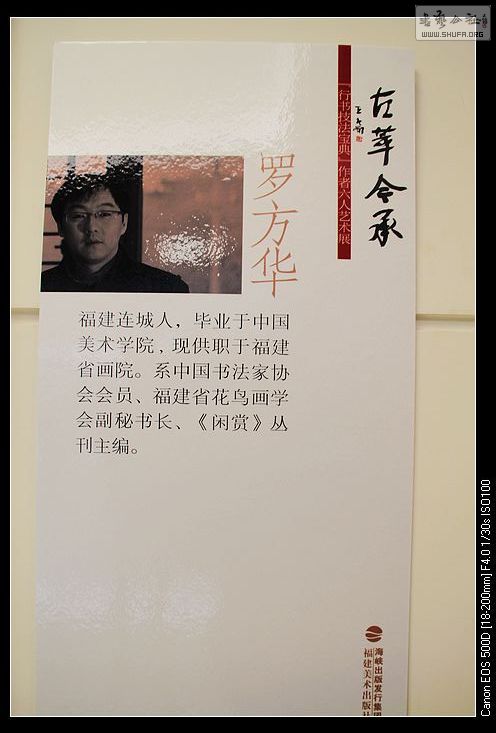 书艺公社
WWW.SHUFA.ORG
古华今承
「行书技法宝典」作者六人艺术展
罗方华
福建连城人，毕业于中国
美术学院，现供职于福建
省画院。系中国书法家协
会会员、福建省花鸟画学
会副秘书长、《闲赏》丛
刊主编。
海峡出版发行集团
福建美术出版社
Canon EOS 500D [18-200mm] F4.0 1/30s ISO100